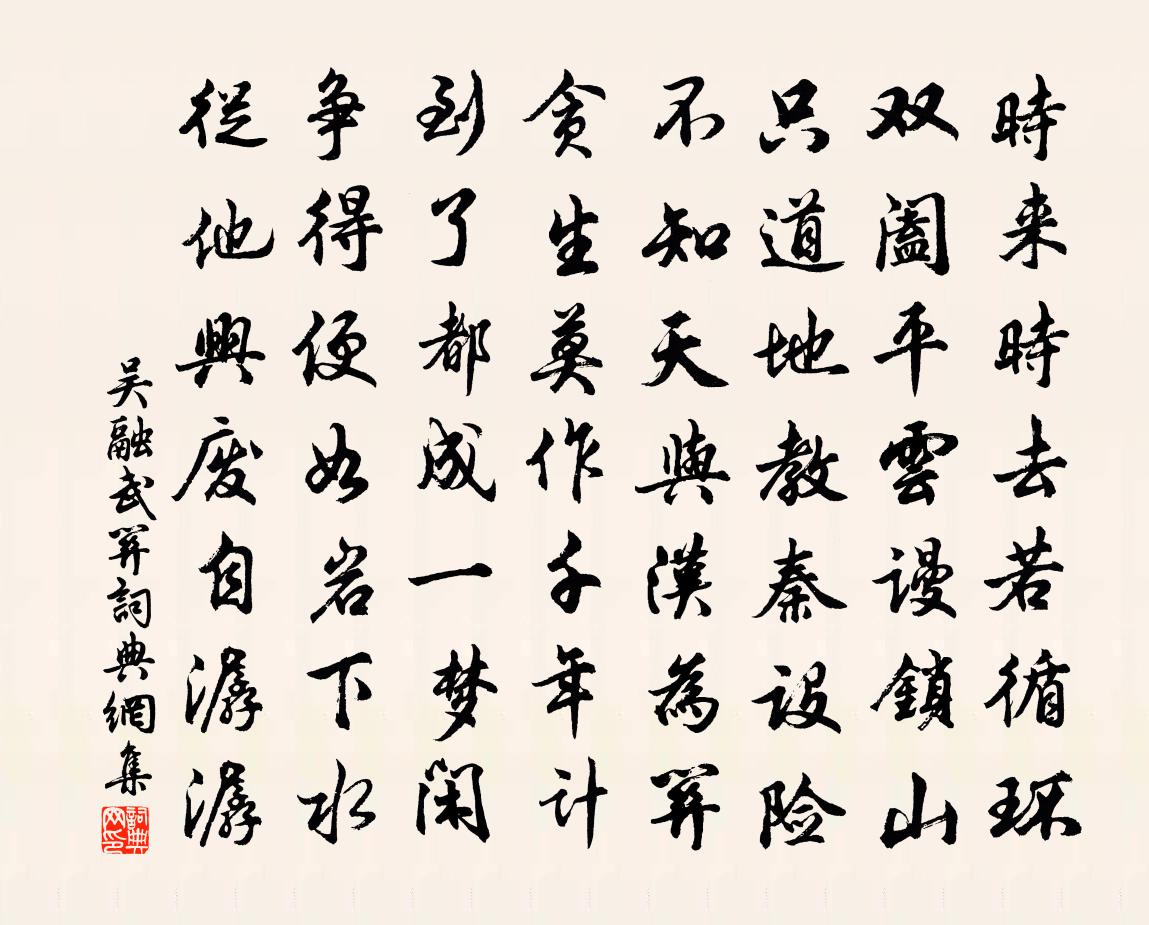 時来時去若循环
双阖平雲谩鎖山
只道地教秦设险
不知天與漢為関
贪生莫作千年计
到了都成一梦闲
争得便如岩下水
從他興废自潺潺
吴融武関詞典網集
詞典网印